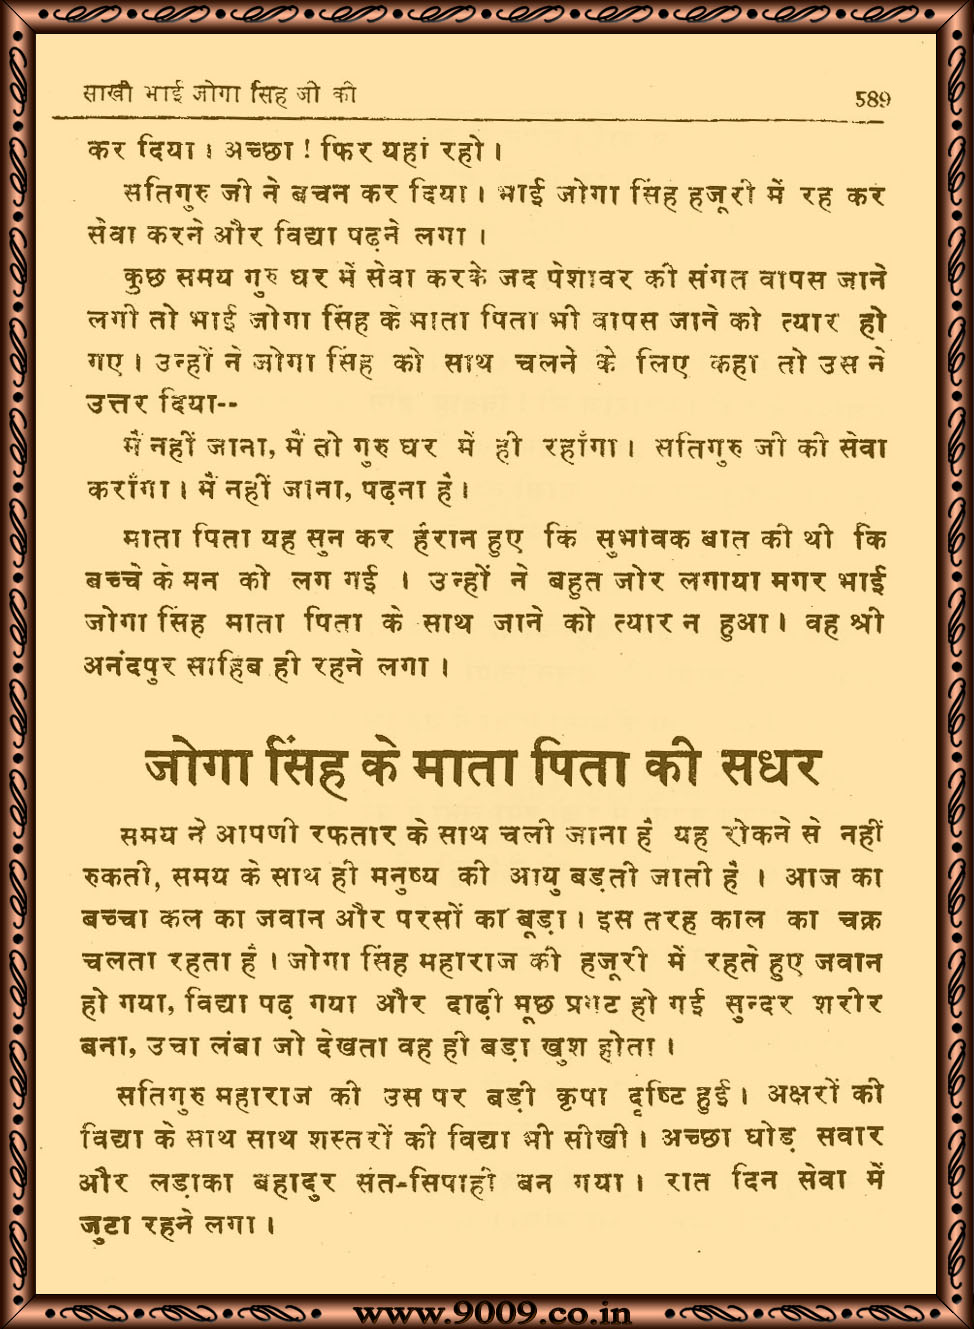 साखी भाई जोगा सिंह जी की 589
कर दिया। अच्छा! फिर यहां रहो।
सतिगुरु जी ने बचन कर दिया। भाई जोगा सिंह हजूरी में रह कर
सेवा करने और विद्या पढ़ने लगा।
कुछ समय गुरु घर में सेवा करके जद पेशावर की संगत वापस जाने
लगी तो भाई जोगा सिंह के माता पिता भी वापस जाने को त्यार हो
गए। उन्हों ने जोगा सिंह को साथ चलने के लिए कहा तो उस ने
उत्तर दिया--
मैं नहीं जाना, मैं तो गुरु घर में ही रहाँगा। सतिगुरु जी की सेवा
कराँगा। मैं नहीं जाना, पढ़ना है।
माता पिता यह सुन कर हैरान हुए कि सुभावक बात की थी कि
बच्चे के मन को लग गई । उन्हों ने बहुत जोर लगाया मगर भाई
जोगा सिंह माता पिता के साथ जाने को त्यार न हुआ। वह श्री
अनंदपुर साहिब ही रहने लगा।
जोगा सिंह के माता पिता की सधर
समय ने आपणी रफतार के साथ चली जाना है यह रोकने से नहीं
रुकती, समय के साथ ही मनुष्य की आयु बड़ती जाती है । आज का
बच्चा कल का जवान और परसों का बूड़ा। इस तरह काल का चक्र
चलता रहता है । जोगा सिंह महाराज की हजूरी में रहते हुए जवान
हो गया, विद्या पढ़ गया और दाढ़ी मूछ प्रगट हो गई सुन्दर शरीर
बना, उचा लंबा जो देखता वह ही बड़ा खुश होता।
सतिगुरु महाराज की उस पर बड़ी कृपा दृष्टि हुई। अक्षरों की
विद्या के साथ साथ शस्तरों की विद्या भी सीखी। अच्छा घोड़ सवार
और लड़ाका बहादुर संत-सिपाही बन गया। रात दिन सेवा में
जुटा रहने लगा।
www.9009.co.in